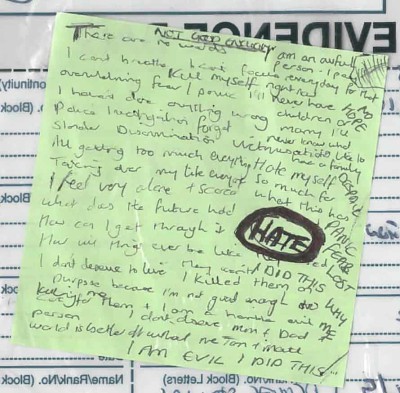 EVIDENCE
(Continuity)
(Block
(Block
NOT GOOD ENOUGH
There are no words I am an awful
person. I pay
I can't breathe I can't focus everyday for that
Kill myself right now NO
HOPE
overwhelming fear / panic I'll never have
children or
I haven't done anything wrong marry I'll
never know what
Police investigation forget its like to
have a family
Slander Discrimination Victimisation DESPAIR
All getting too much everything Hate myself
Taking over my life so much for PANIC
what this has
I feel very alone + scared FEAR
What does the future hold LOST
HATE
How can I get through it
How will things ever be like
they I DID THIS
I don't deserve to live I killed them on WHY
purpose because I'm not good enough ME
to care for them + I am a horrible evil
person I don't deserve mum & Dad
world is better off without me
I AM EVIL I DID THIS
Name/Rank/No. (Block Letters) Name/Rank/No. (Block